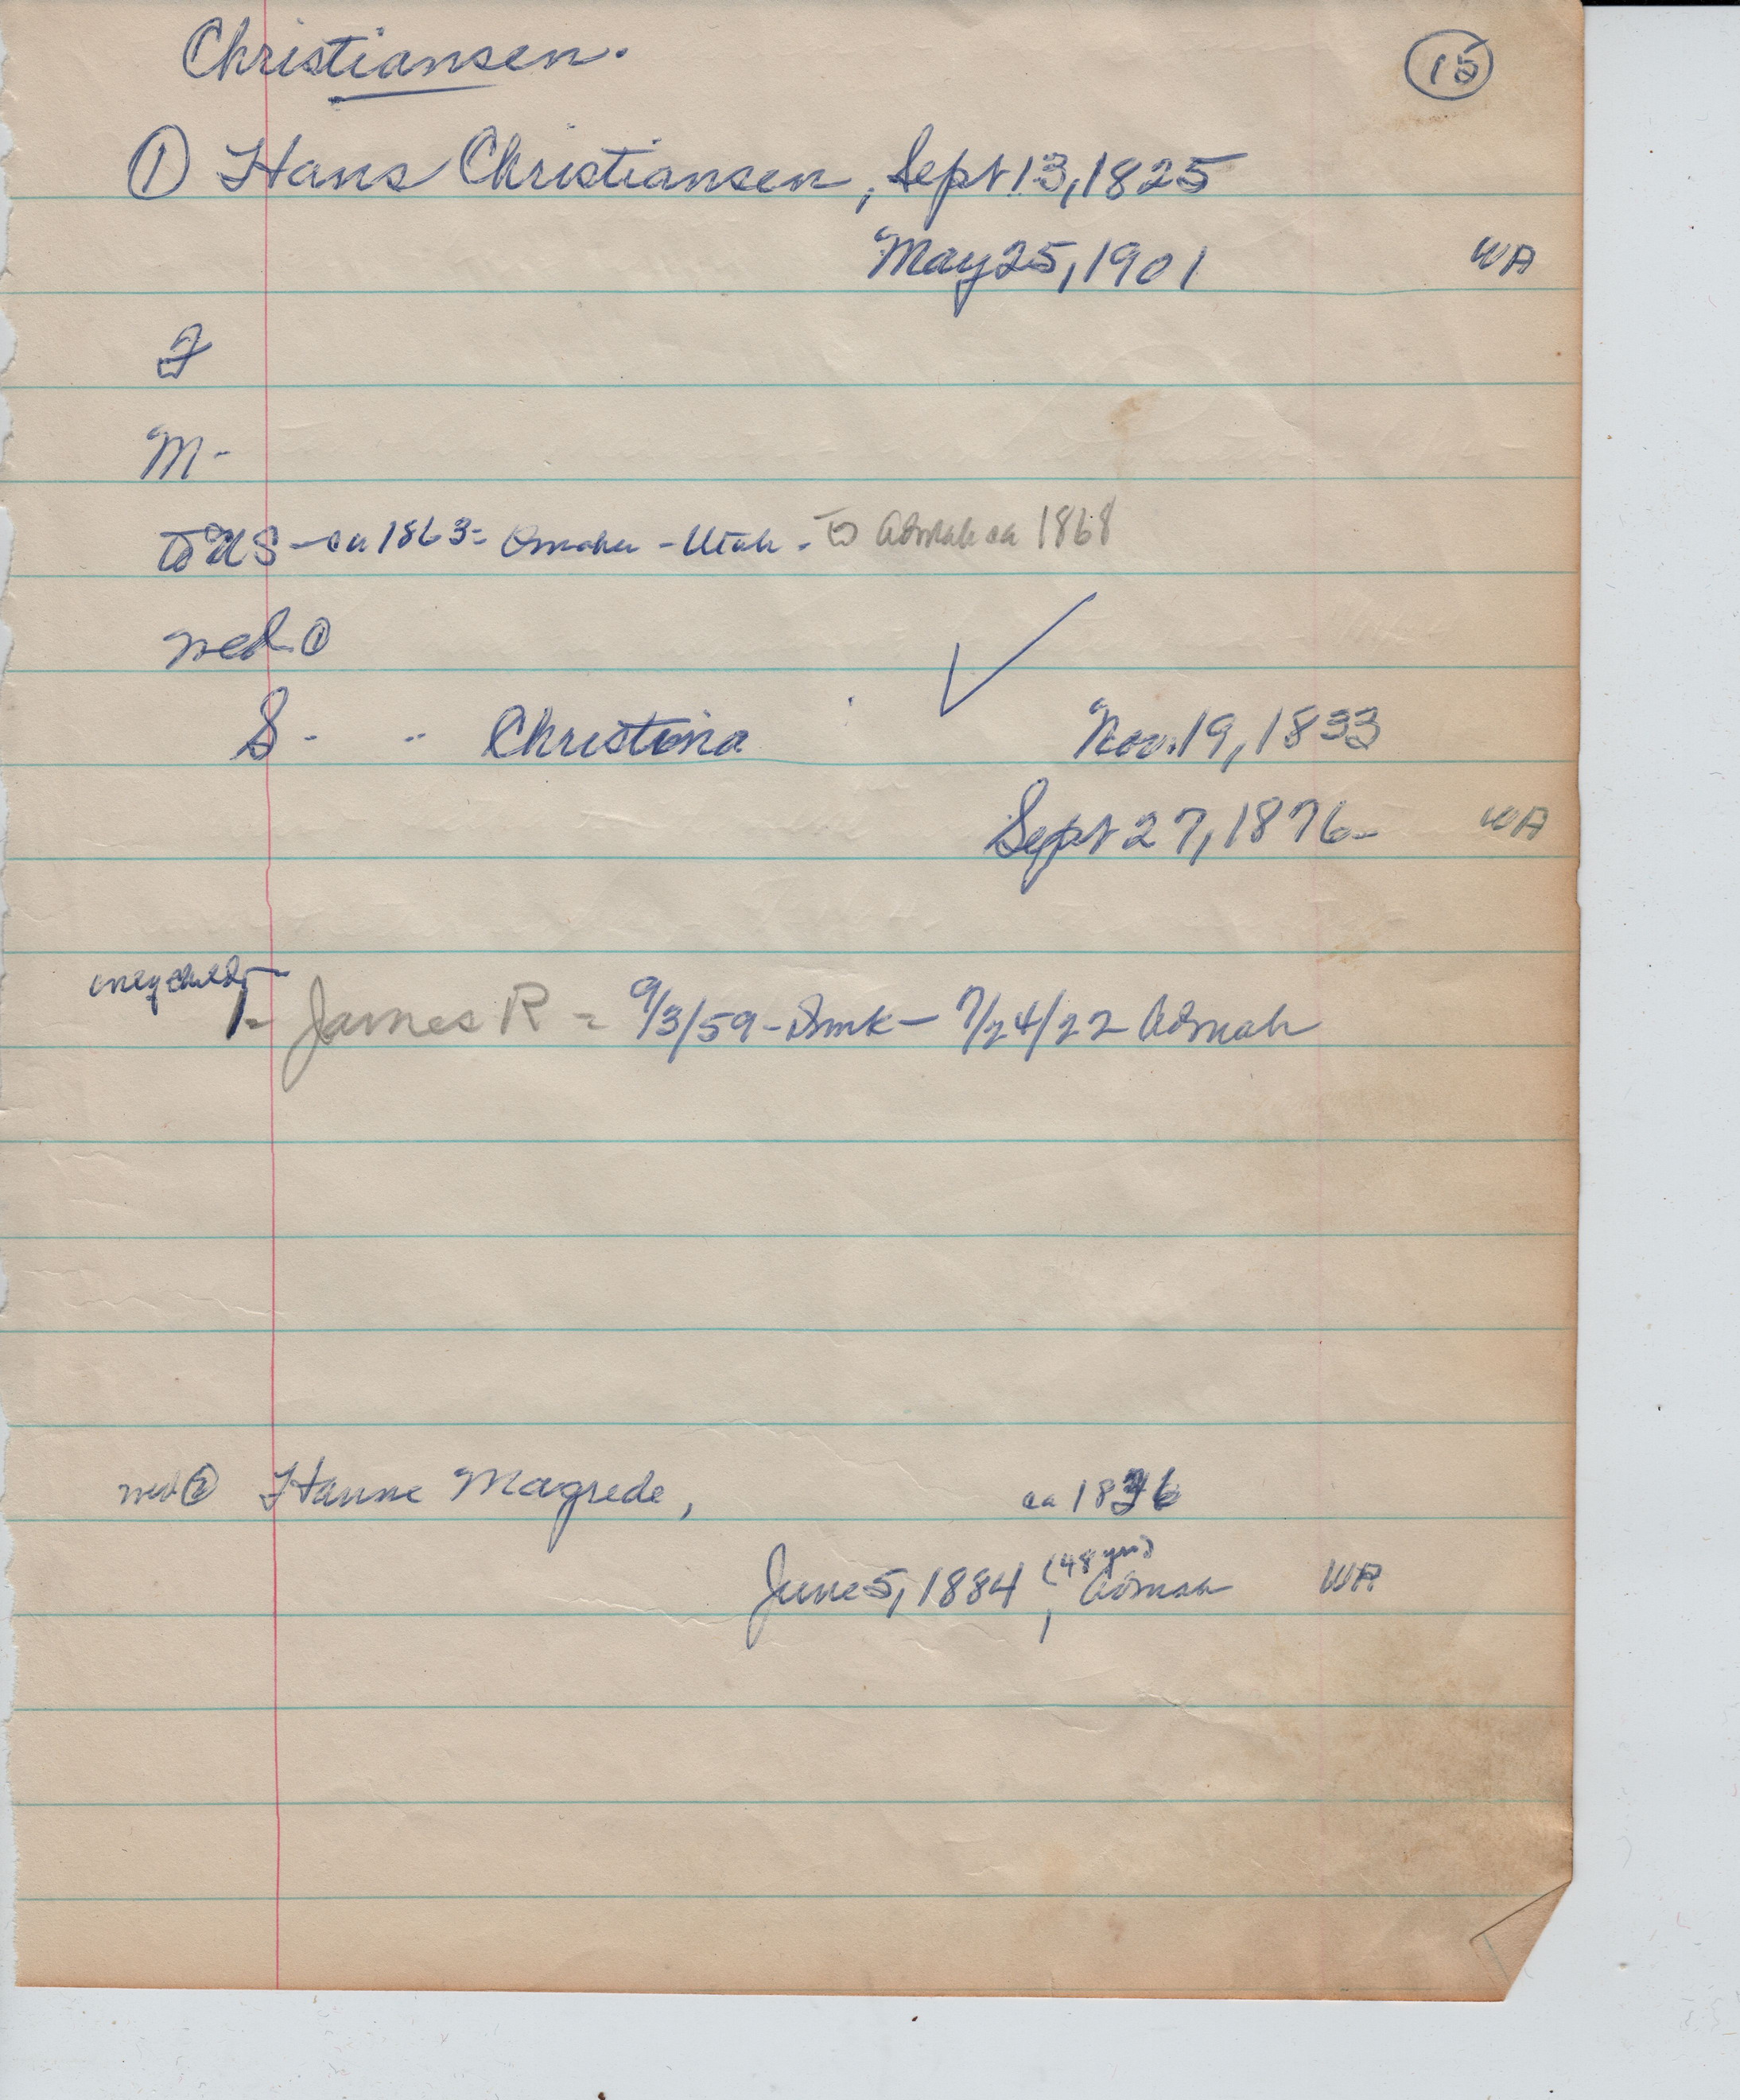 Christiansen.
15
① Hans Christiansen, Sept 13, 1825
May 25, 1901 WA
F
M -
to US - ca 1863 - Omaha - Utah - to Admah ca 1868
wed ①
S - " Christina Nov. 19, 1833
Sept 27, 1876 - WA
only child -
1 - James R - 9/3/59 - Dmk - 7/24/22 Admah
wed ② Hanne Magrede, ca 1836
June 5, 1884, (48 yrs) Admah WA